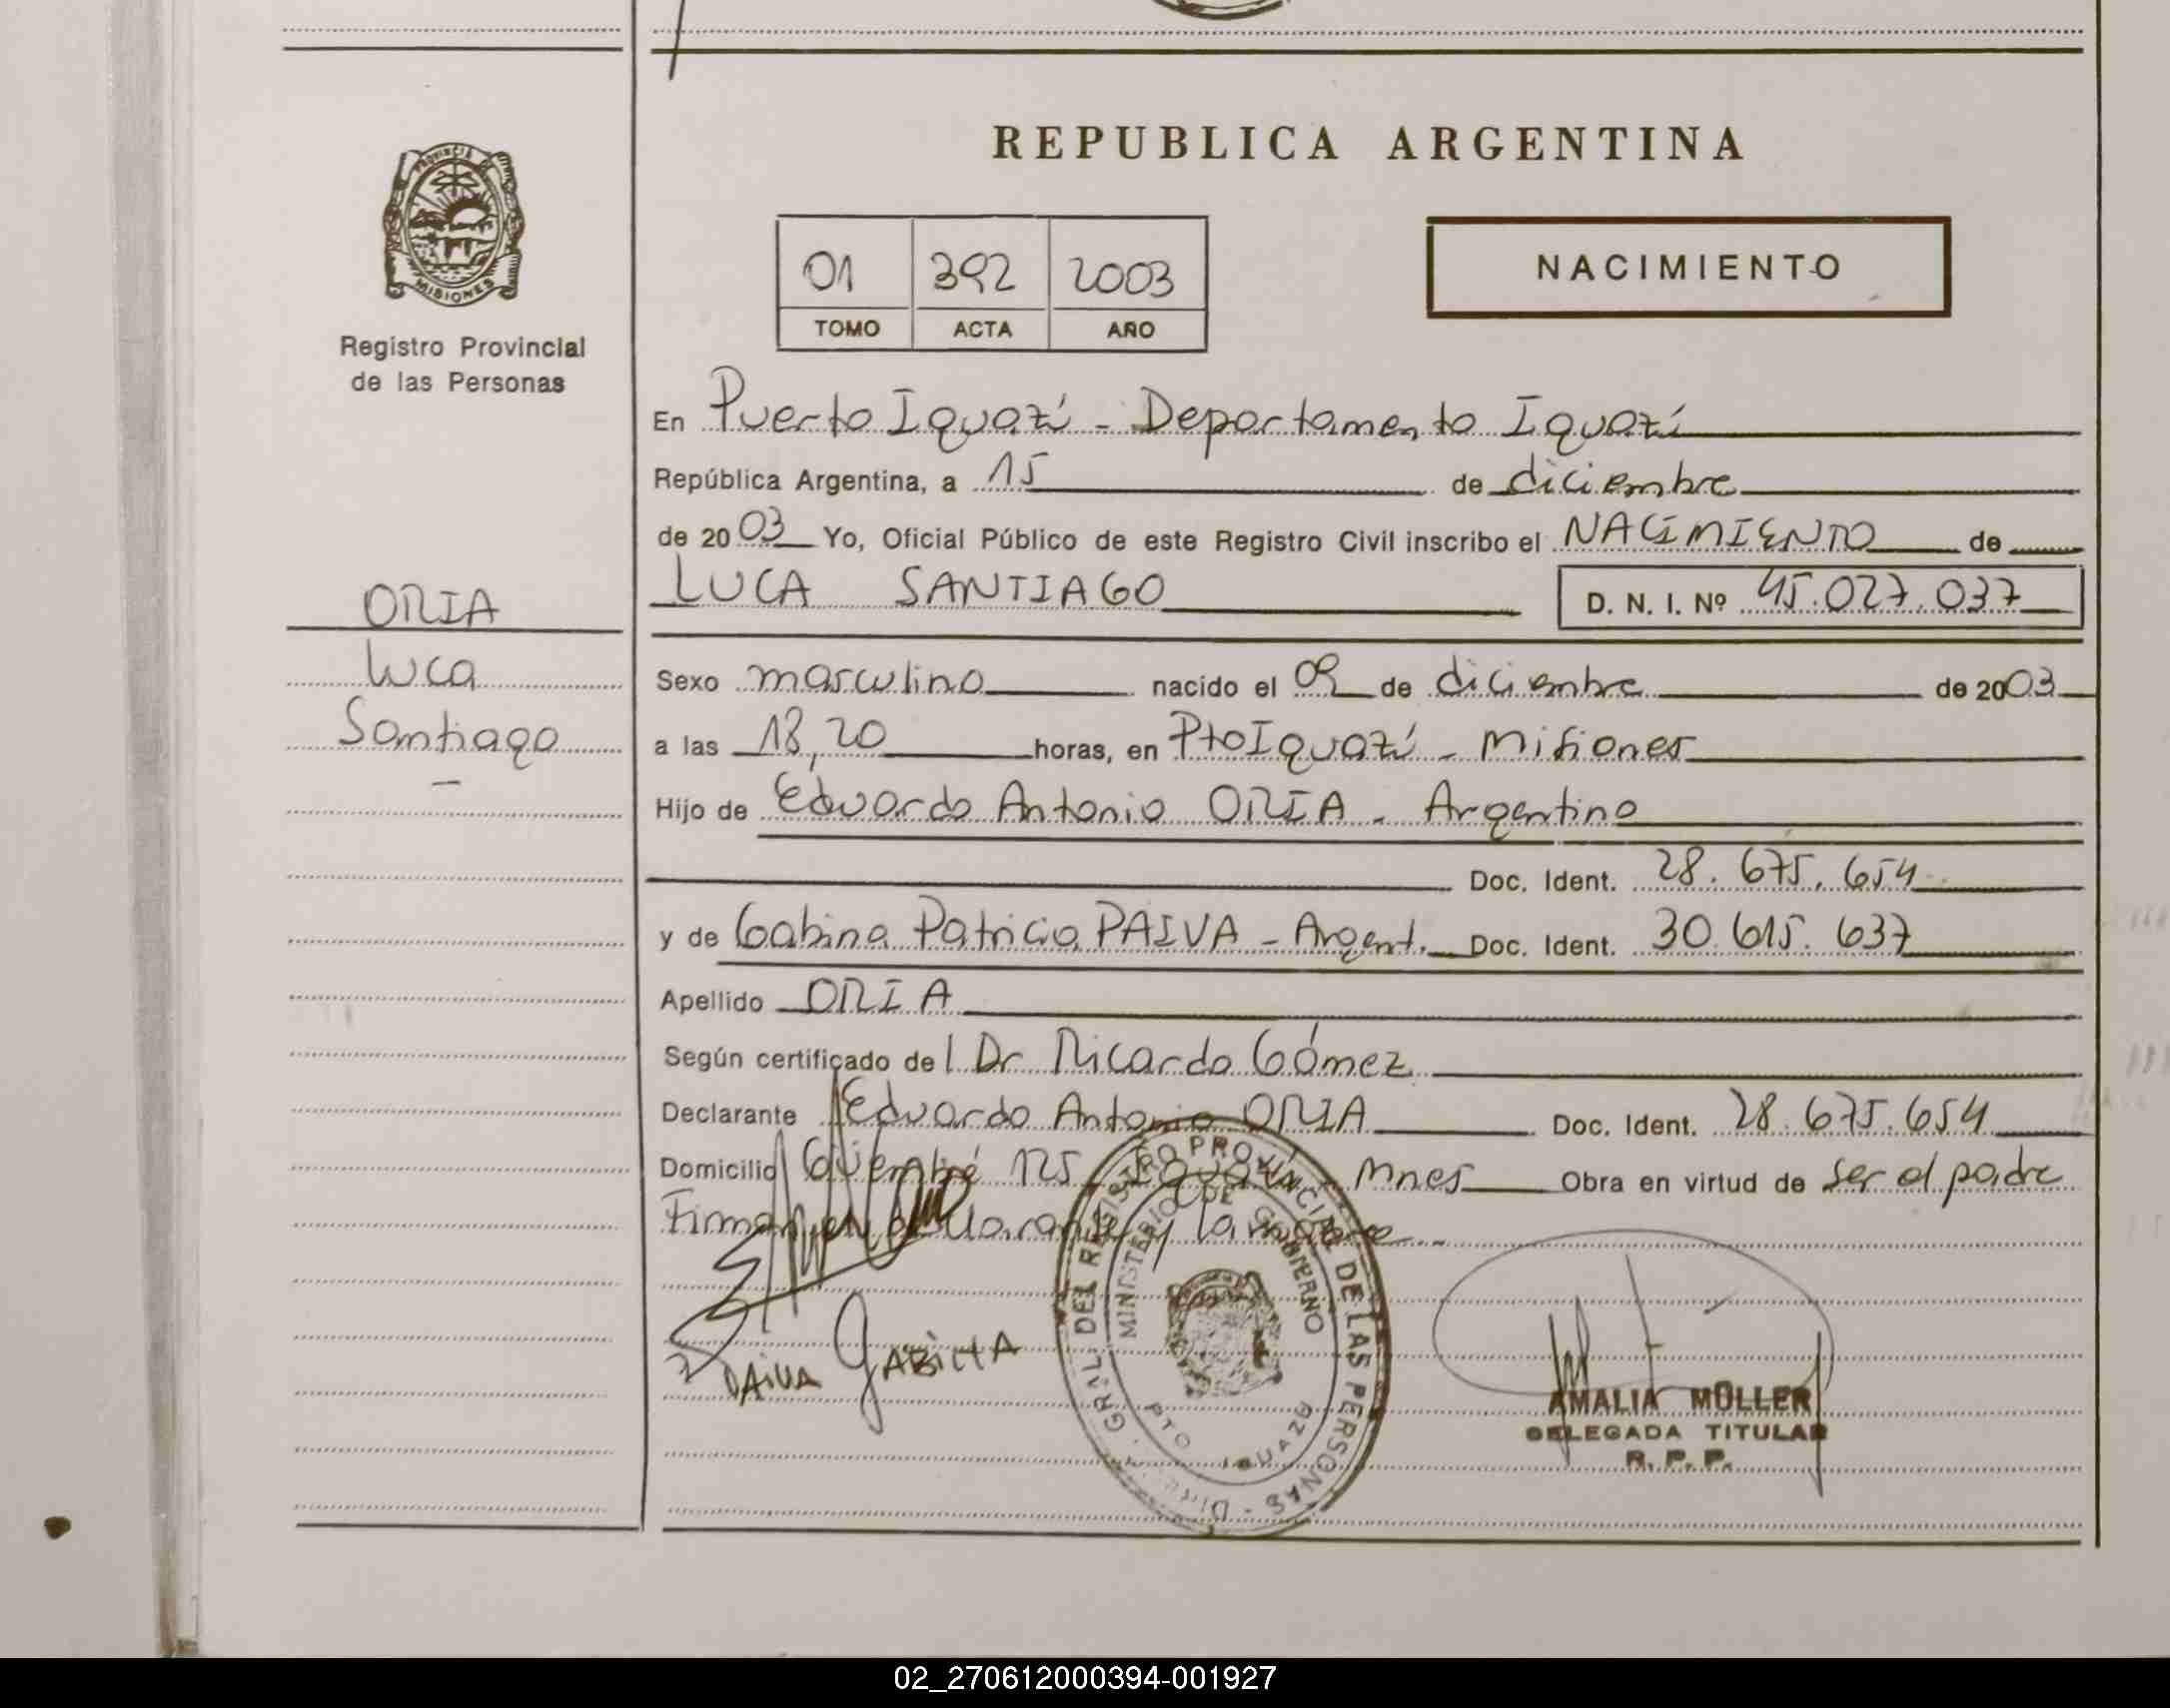 REPUBLICA ARGENTINA
PROVINCIA
MISIONES
Registro Provincial
de las Personas
01 392 2003
TOMO ACTA AÑO
NACIMIENTO
En Puerto Iguazú - Departamento Iguazú
República Argentina, a 15 de diciembre
de 2003 Yo, Oficial Público de este Registro Civil inscribo el NACIMIENTO de
LUCA SANTIAGO D. N. I. Nº 45.027.037
ORIA
Luca
Santiago
Sexo masculino nacido el 09 de diciembre de 2003
a las 18,20 horas, en Pto Iguazú - Misiones
Hijo de Eduardo Antonio ORIA - Argentino
Doc. Ident. 28.675.654
y de Gabina Patricia PAIVA - Argent. Doc. Ident. 30.615.637
Apellido ORIA
Según certificado del Dr Ricardo Gómez
Declarante Eduardo Antonio ORIA Doc. Ident. 28.675.654
Domicilio 125 Iguazú - Mnes Obra en virtud de ser el padre
Firman el declarante y la madre
PAIVA GABINA
GRAL. DEL REGISTRO PROVINCIAL DE LAS PERSONAS
MINISTERIO DE GOBIERNO
PTO IGUAZU
AMALIA MÜLLER
DELEGADA TITULAR
R. P. P.
02_270612000394-001927